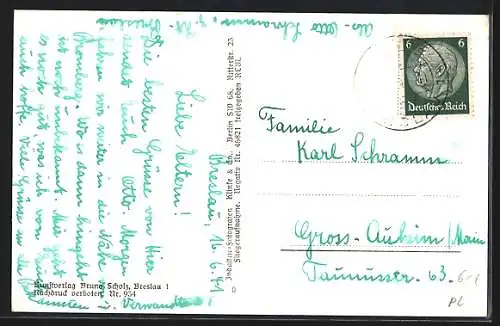 Abs. Otto Schramm, z. Zt. Breslau
Breslau, 16.6.41
Liebe Eltern!
Die besten Grüsse von hier
sendet Euch Otto. Morgen
fahren wir weiter in die Nähe von
Bromberg. Wo es dann hingeht
ist noch unbekannt. Mir geht
es noch gut, was ich von Euch
auch hoffe. Viele Grüsse an die
Bekannten u. Verwandten
Kunstverlag Bruno Scholz, Breslau 1
Nachdruck verboten. Nr. 954
Industrie-Fotografen Klinke & Co., Berlin SW 68, Ritterstr. 23
Fliegeraufnahme. Negativ Nr. 46821 freigegeben RLM.
6 6
Deutsches Reich
Familie
Karl Schramm
Gross-Auheim/Main
Taunusstr. 63